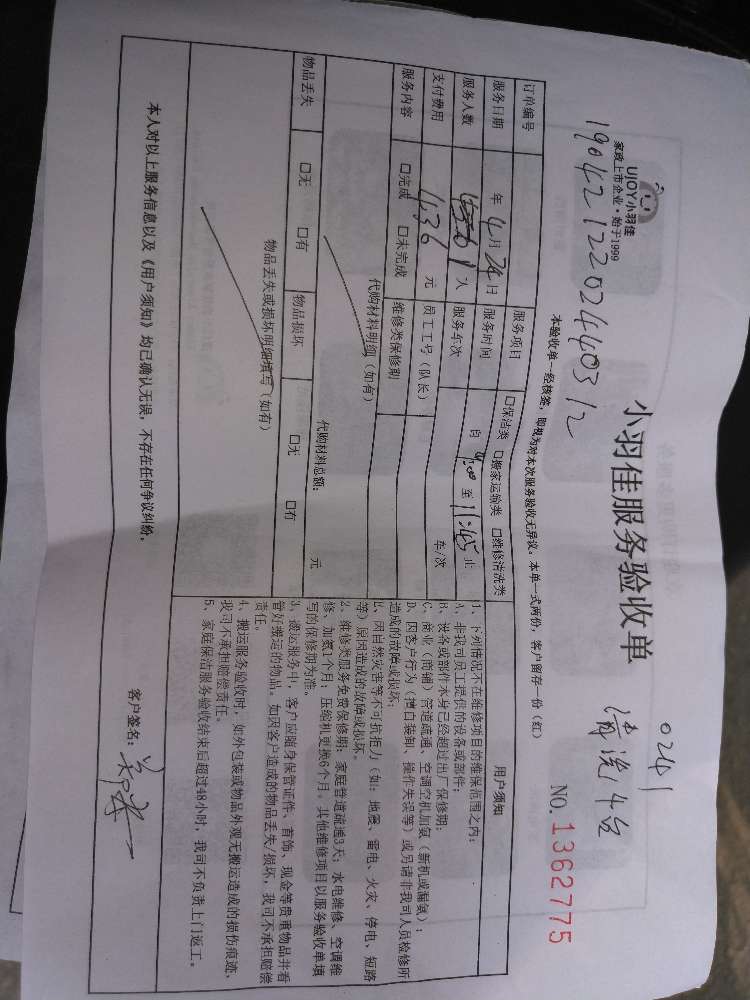 UJOY小羽佳
家政上市企业·始于1999
小羽佳服务验收单
0241
清洗4台
19042122024403 12
NO.1362775
本验收单一经核签，即视为对本次服务验收无异议。本单一式两份，客户留存一份（红）
订单编号
服务项目 口保洁类 口搬家运输类 口维修清洗类
服务日期 年4月24日 服务时间 自9:00至11:45止
服务人数 人 服务车次 车/次
支付费用 436元 员工工号（队长）
服务内容 口完成 口未完成 维修类保修期
代购材料明细（如有）
代购材料总额： 元
物品丢失 口无 口有 物品损坏 口无 口有
物品丢失或损坏明细填写（如有）
用户须知
1、下列情况不在维修项目的维保范围之内：
A、非我司员工提供的设备或部件；
B、设备或部件本身已经超过出厂保修期；
C、商业（商铺）管道疏通、空调空机加氨（新机或漏氨）；
D、因客户行为（擅自装卸、操作失误等）或另请非我司人员检修所
造成的故障或损坏；
E、因自然灾害等不可抗拒力（如：地震、雷电、火灾、停电、短路
等）原因造成的故障或损坏。
2、维修类服务免费保修期：家庭管道疏通3天；水电维修、空调维
修、加氨1个月；压缩机更换6个月，其他维修项目以服务验收单填
写的保修期为准。
3、搬运服务中，客户应随身保管证件、首饰、现金等贵重物品并看
管好搬运的物品。如因客户造成的物品丢失/损坏，我司不承担赔偿
责任。
4、搬运服务验收时，如外包装或物品外观无搬运造成的损伤痕迹，
我司不承担赔偿责任。
5、家庭保洁服务验收结束后超过48小时，我司不负责上门返工。
本人对以上服务信息以及《用户须知》均已确认无误，不存在任何争议纠纷。
客户签名：